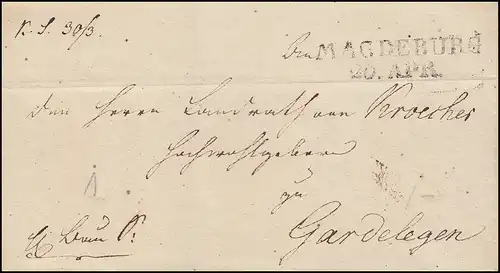 K. S. 30/3.
An MAGDEBURG
20. APR.
den Herrn Landrath von Kroecher
Hochwohlgeboren
zu
Gardelegen
Bau S: